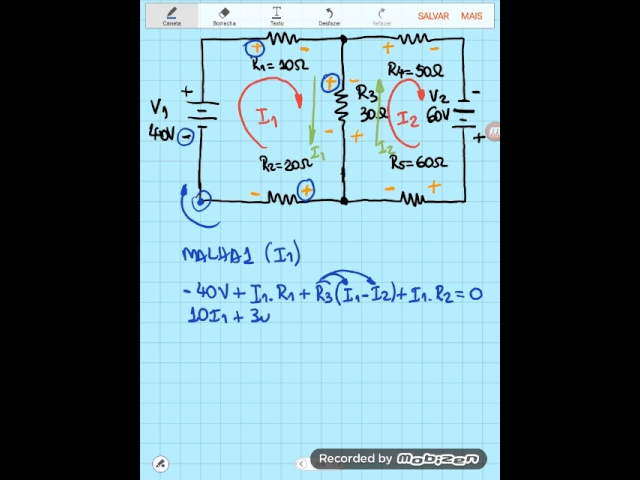 Caneta Borracha Texto Desfazer Refazer SALVAR MAIS
+ - + -
R1=10Ω R4=50Ω
+ - -
V1 + R3 V2 -
40V - I1 30Ω I2 60V
- + +
I1 I2
R2=20Ω R5=60Ω
- + - +
MALHA1 (I1)
-40V + I1.R1 + R3(I1-I2) + I1.R2 = 0
10I1 + 3
Recorded by mobizen